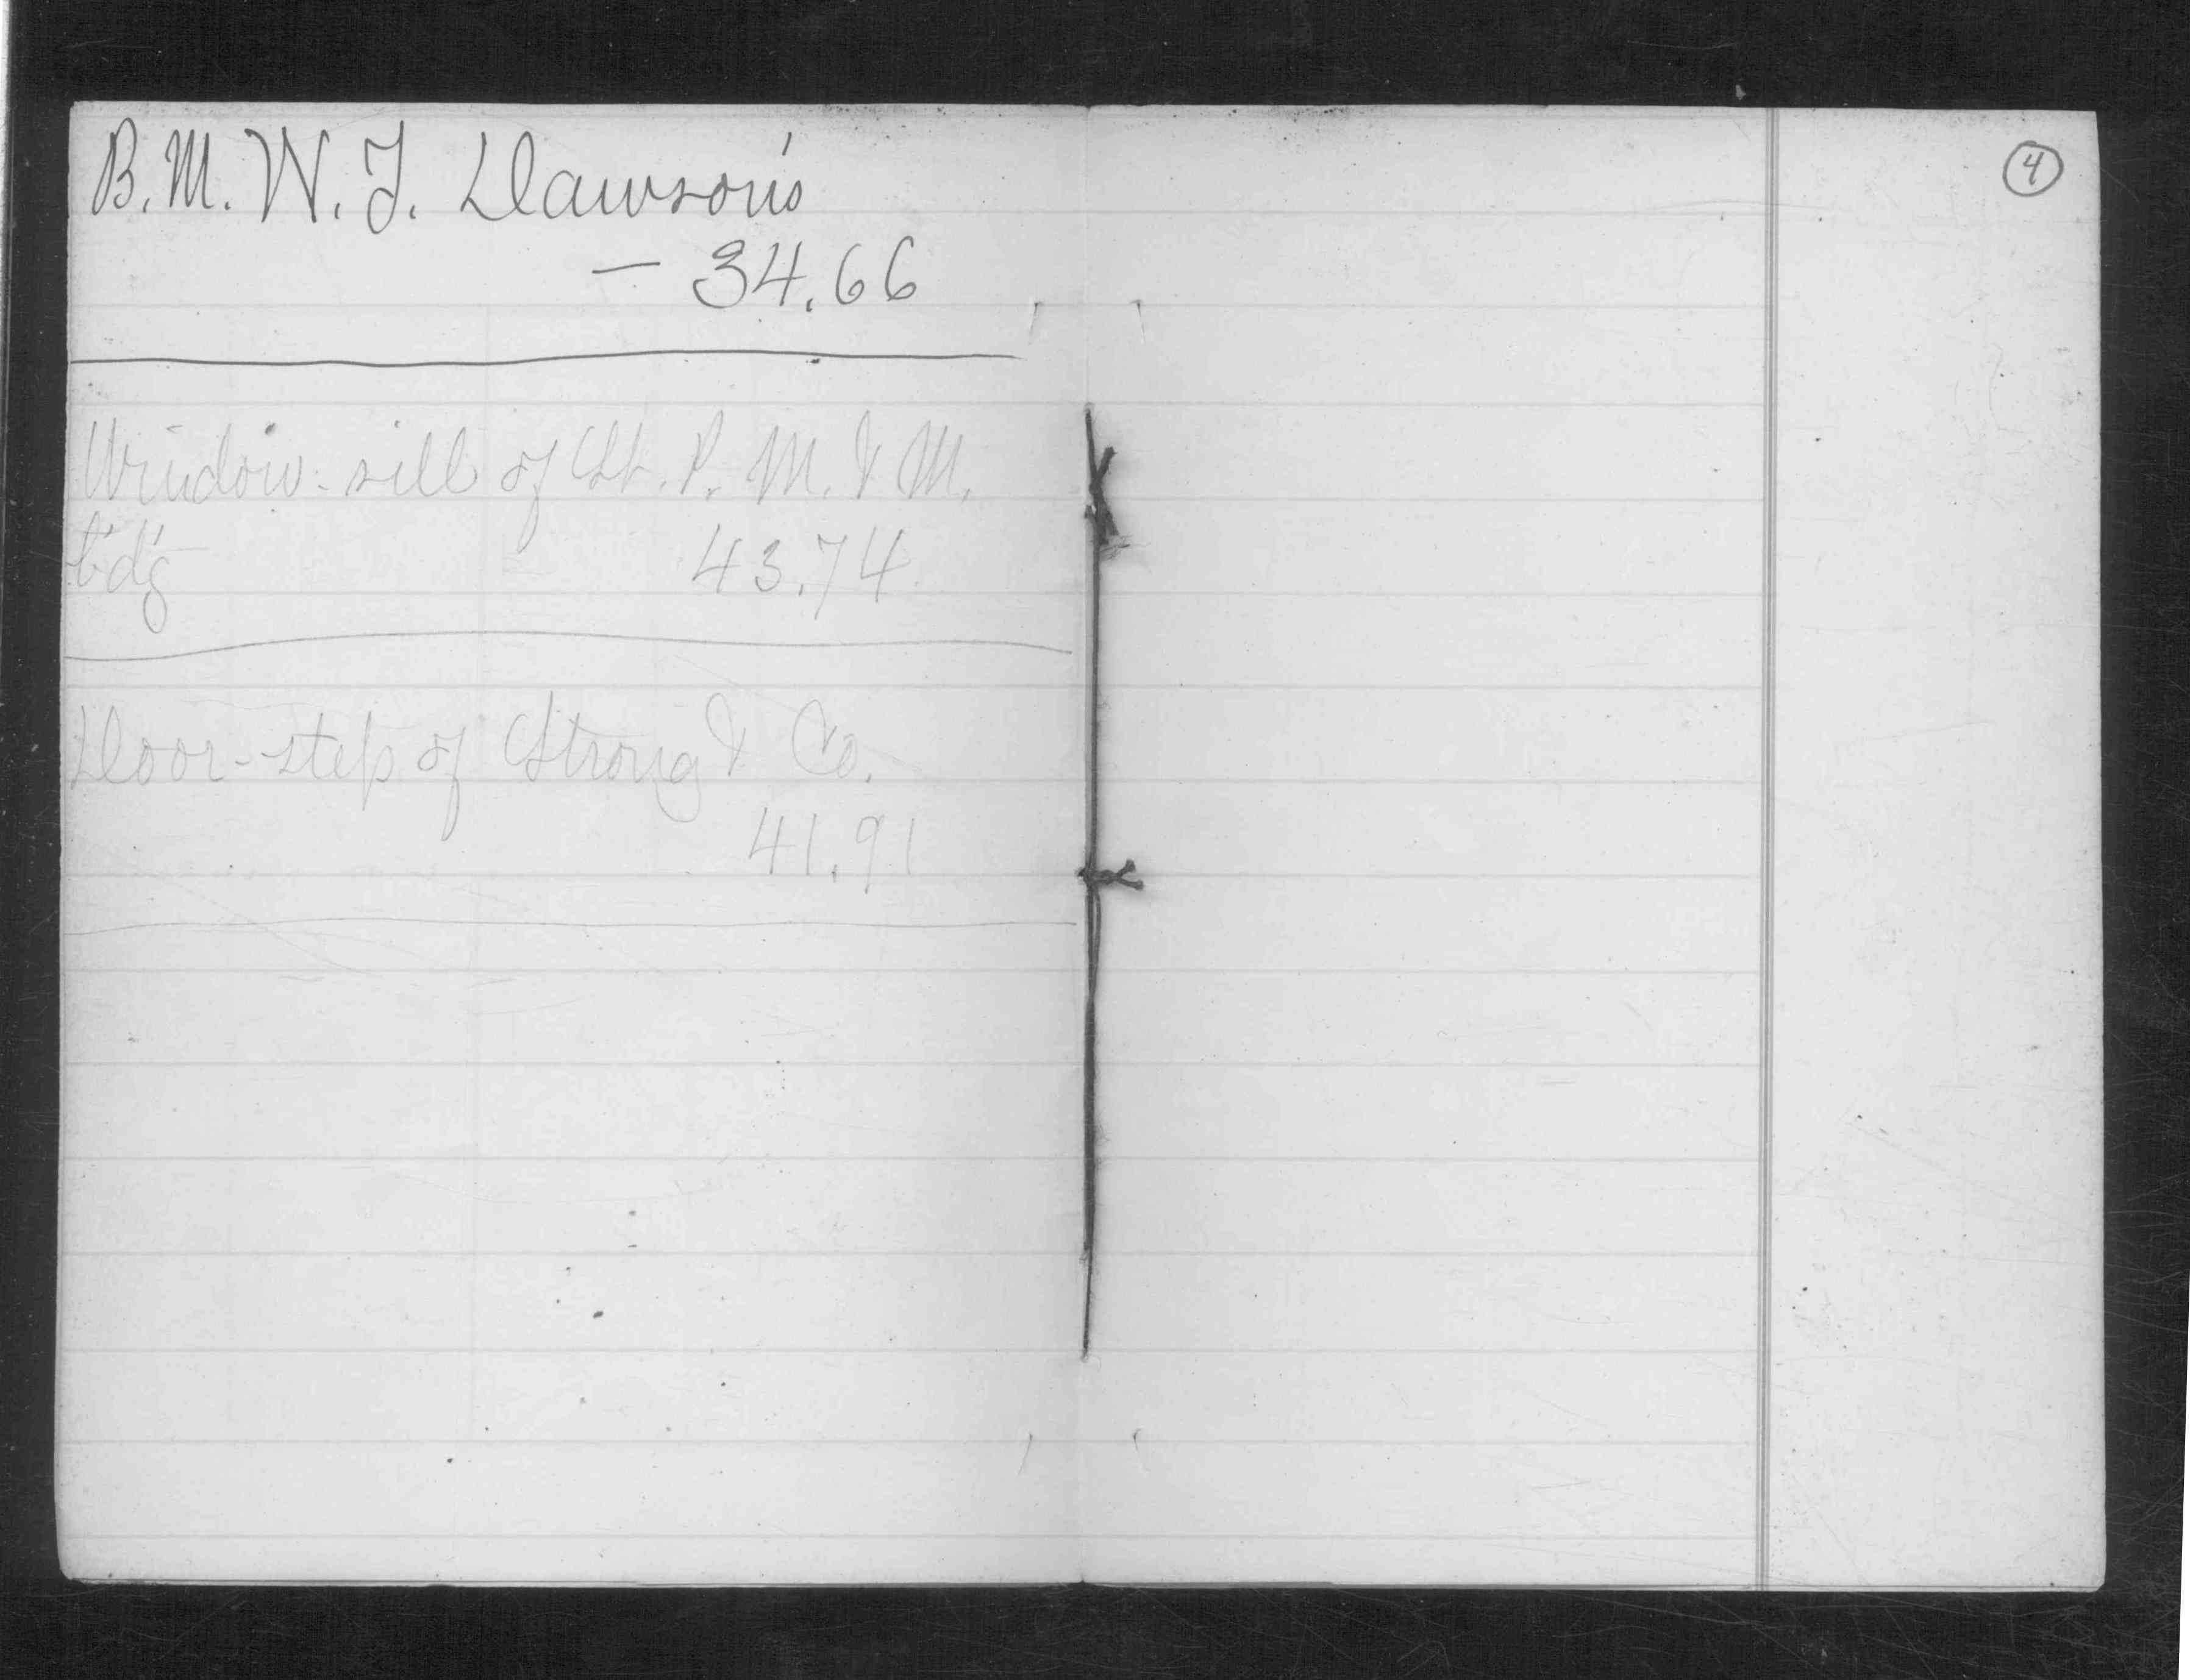 B. M. W. J. Dawson's
— 34.66
Window-sill of St. P. M. & M.
b'd'g 43.74
Door-step of Strong & Co.
41.91
4